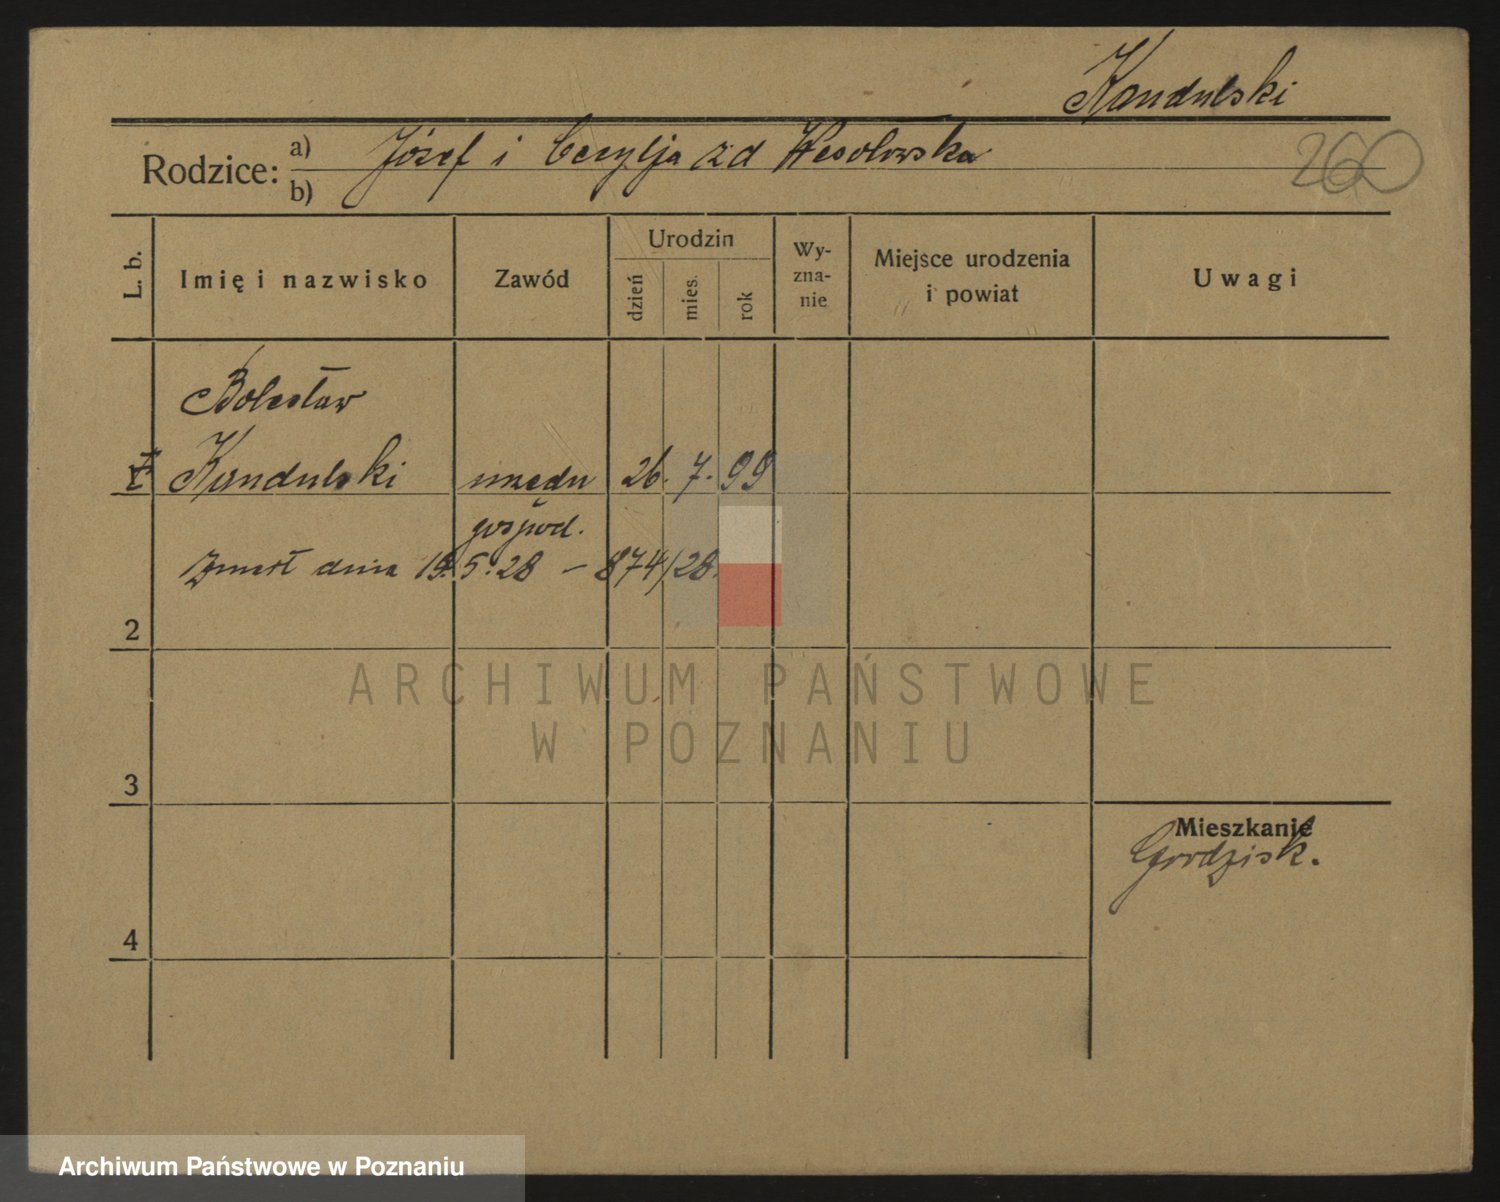 Kandulski
Rodzice: a) Józef i Cecylja zd Wesołowska
b)
260
L. b.
Imię i nazwisko
Zawód
Urodzin
dzień
mies.
rok
Wy-
zna-
nie
Miejsce urodzenia
i powiat
Uwagi
Bolesław
Kandulski urzędn 26. 7. 99
gospod.
Zmarł dnia 19.5.28 – 874/28.
2
3
4
Mieszkanie
Grodzisk.
ARCHIWUM PAŃSTWOWE
W POZNANIU
Archiwum Państwowe w Poznaniu